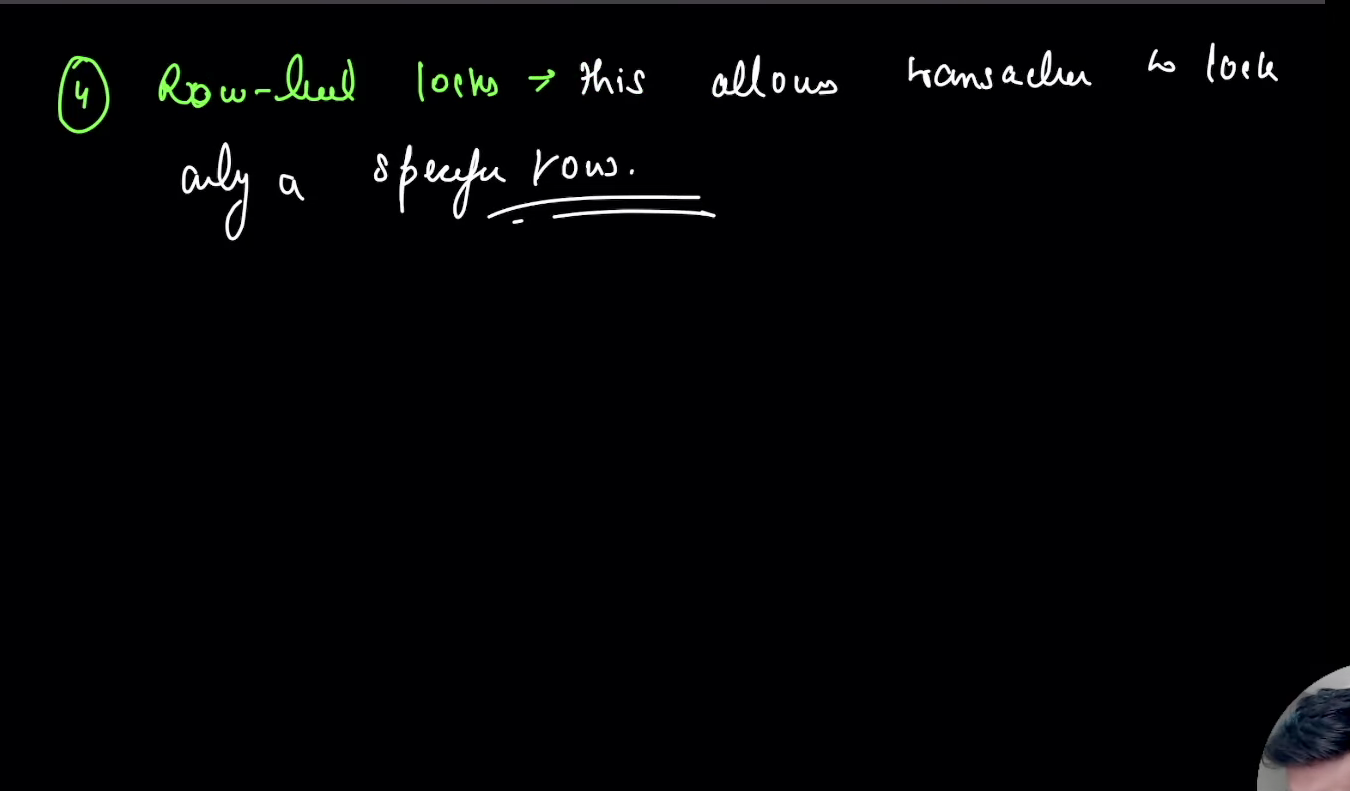 4 Row-level locks → this allows transaction to lock
only a specific row.